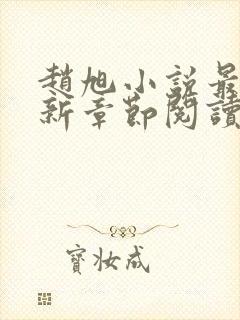 趙旭小說最
新章節閱讀
寶妝成